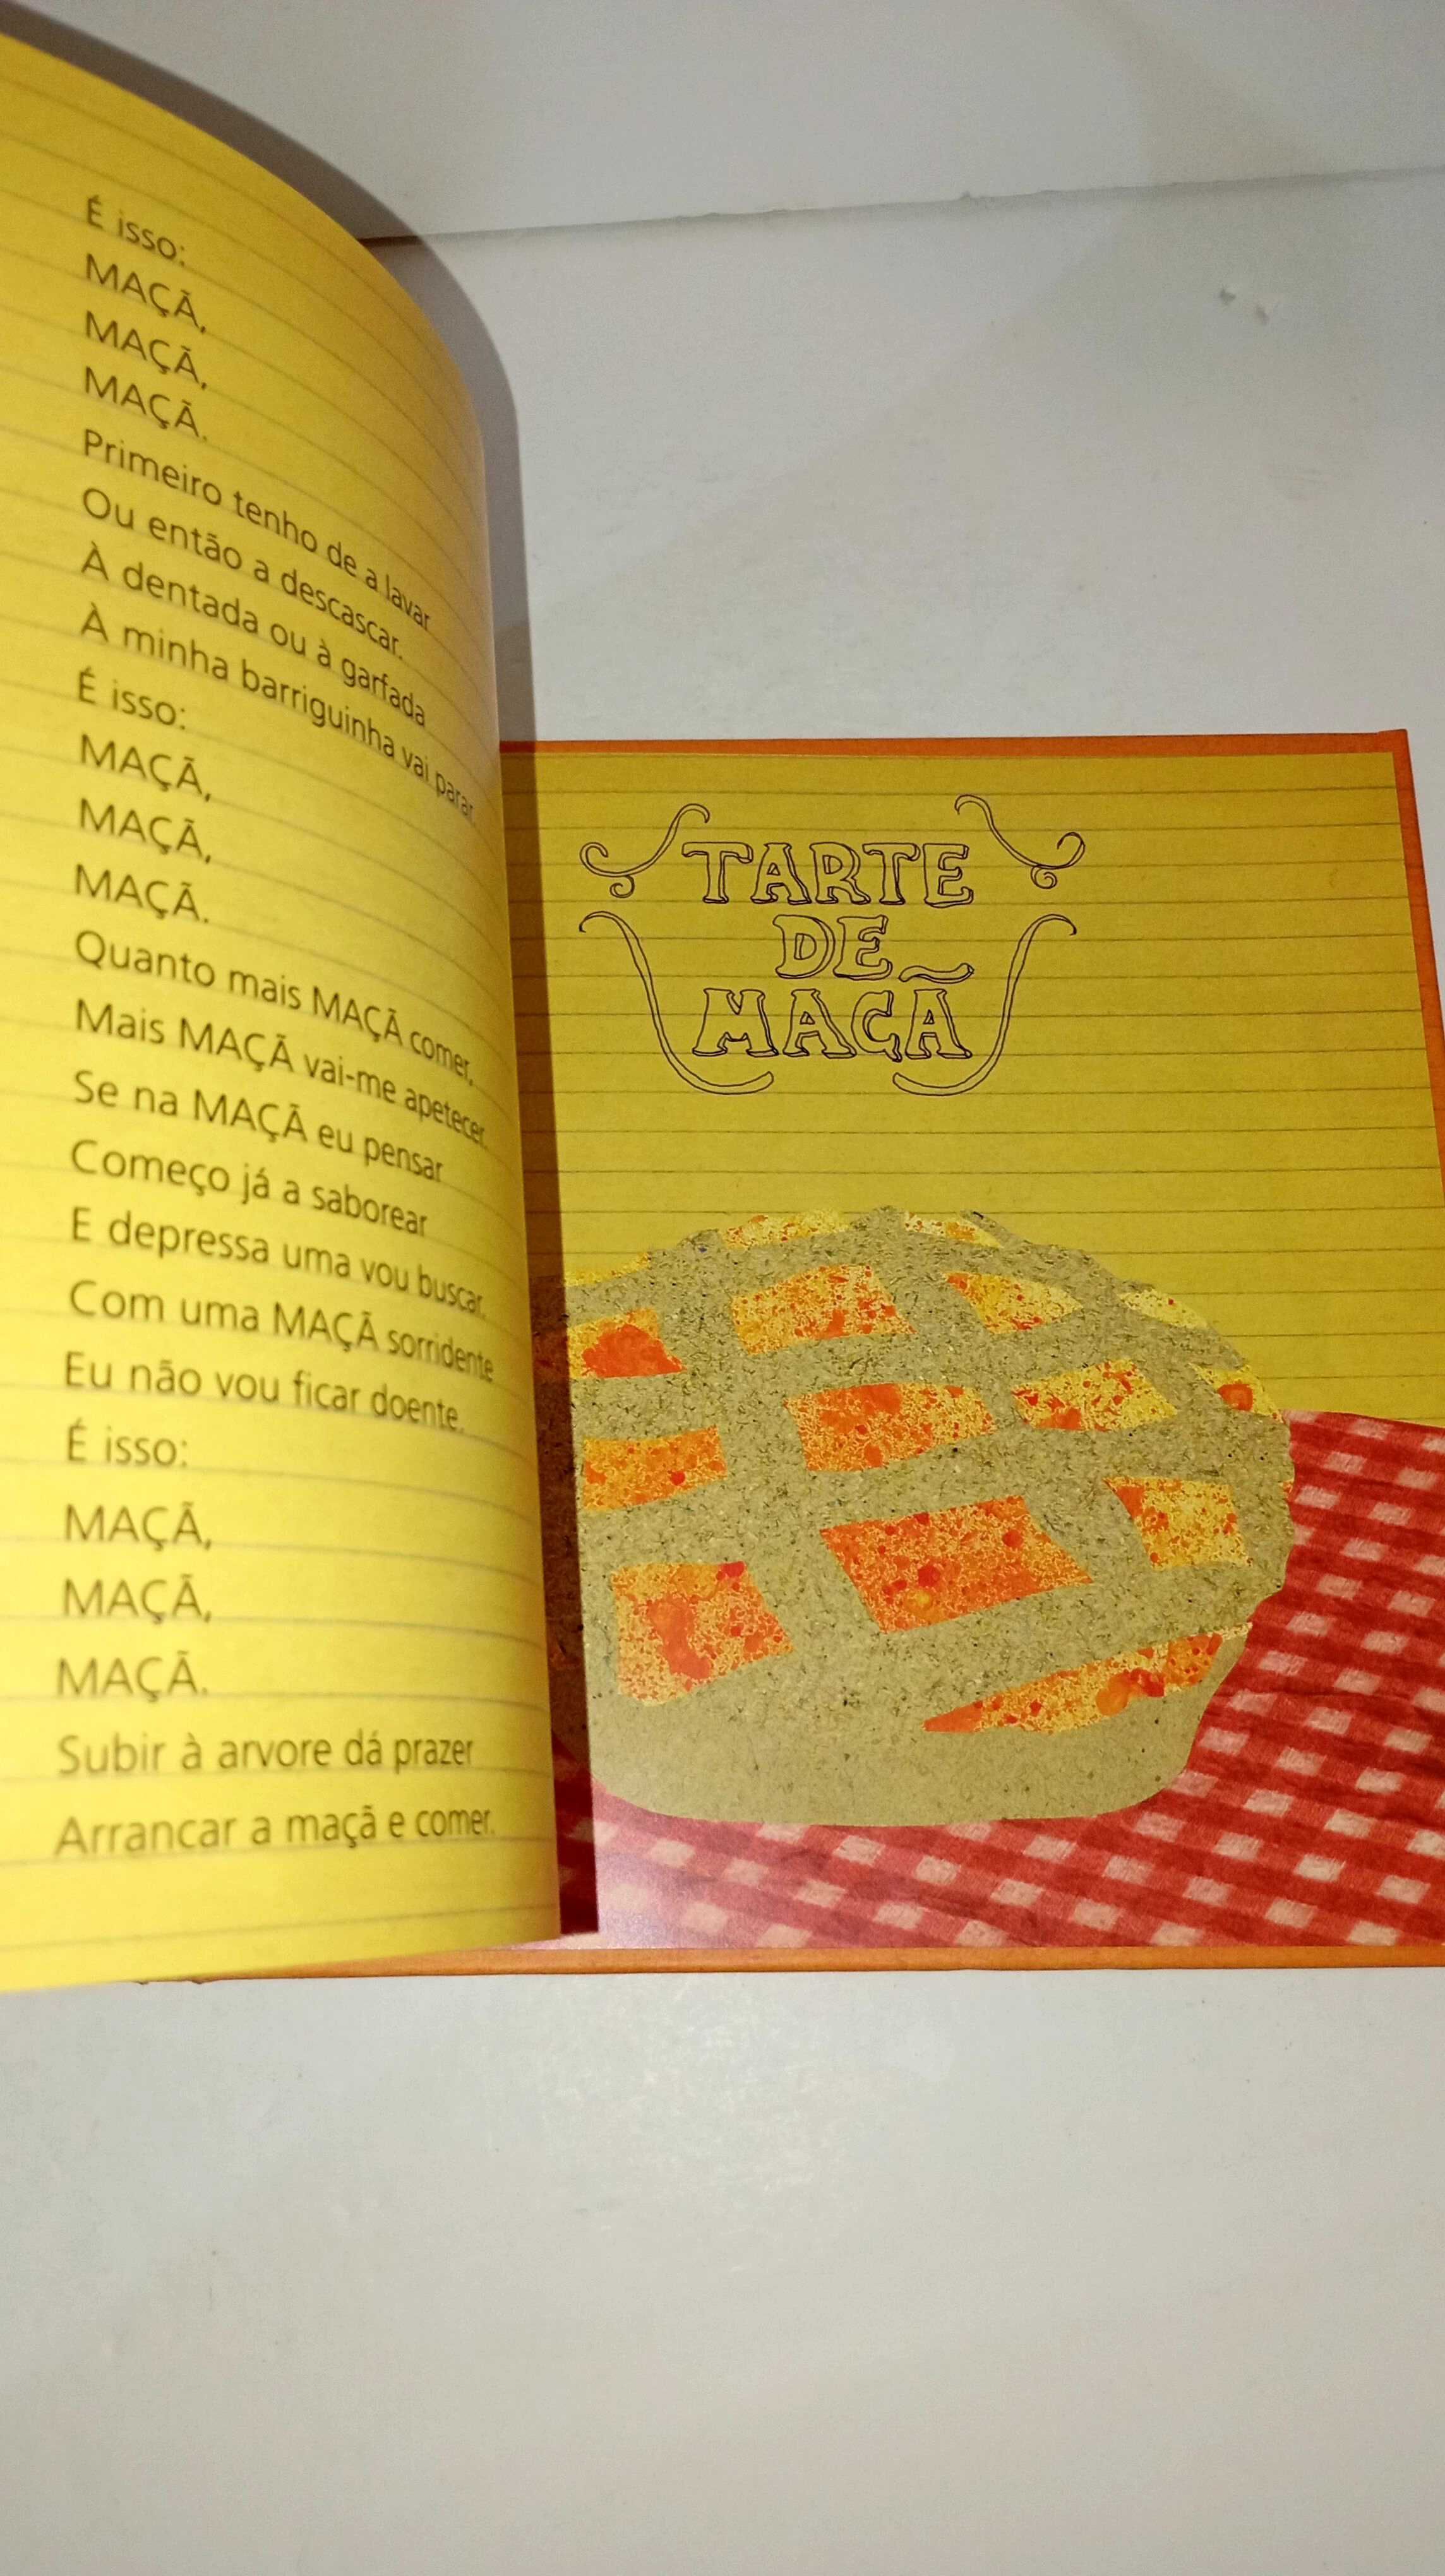 É isso:
MAÇÃ,
MAÇÃ,
MAÇÃ.
Primeiro tenho de a lavar
Ou então a descascar.
À dentada ou à garfada
À minha barriguinha vai parar.
É isso:
MAÇÃ,
MAÇÃ,
MAÇÃ.
Quanto mais MAÇÃ comer,
Mais MAÇÃ vai-me apetecer.
Se na MAÇÃ eu pensar
Começo já a saborear
E depressa uma vou buscar.
Com uma MAÇÃ sorridente
Eu não vou ficar doente.
É isso:
MAÇÃ,
MAÇÃ,
MAÇÃ.
Subir à arvore dá prazer
Arrancar a maçã e comer.
TARTE
DE
MAÇÃ